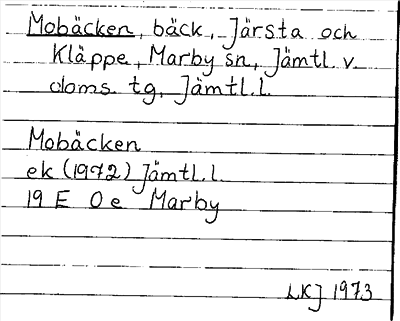 Mobäcken, bäck, Järsta och
Kläppe, Marby sn, Jämtl. v.
doms. tg, Jämtl. l.
Mobäcken
ek (1972) Jämtl. l.
19 E 0 e Marby
LKJ 1973